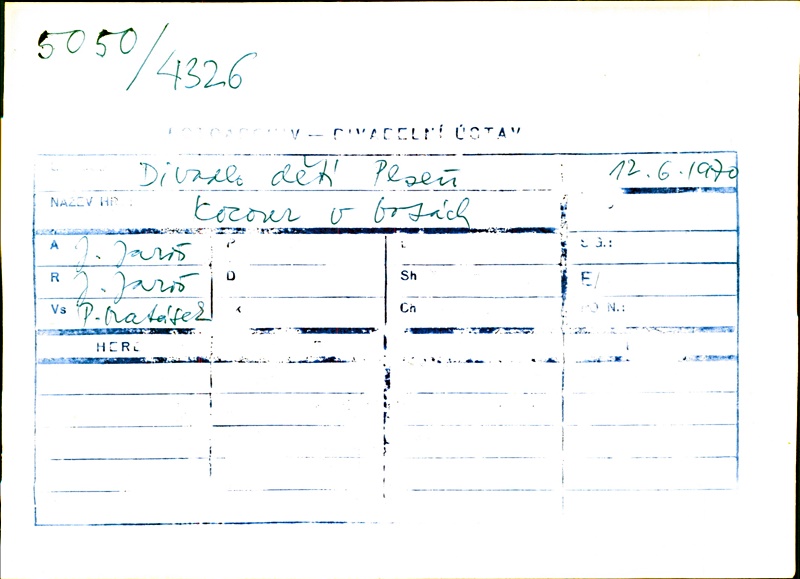 5050/4326
DIVADELNÍ ÚSTAV
Divadlo dětí Plzeň 12.6.1970
NÁZEV HR Kocour v botách
A J. Jaroš
R J. Jaroš D Sh E/
Vs P. Matásek K Ch
HERE